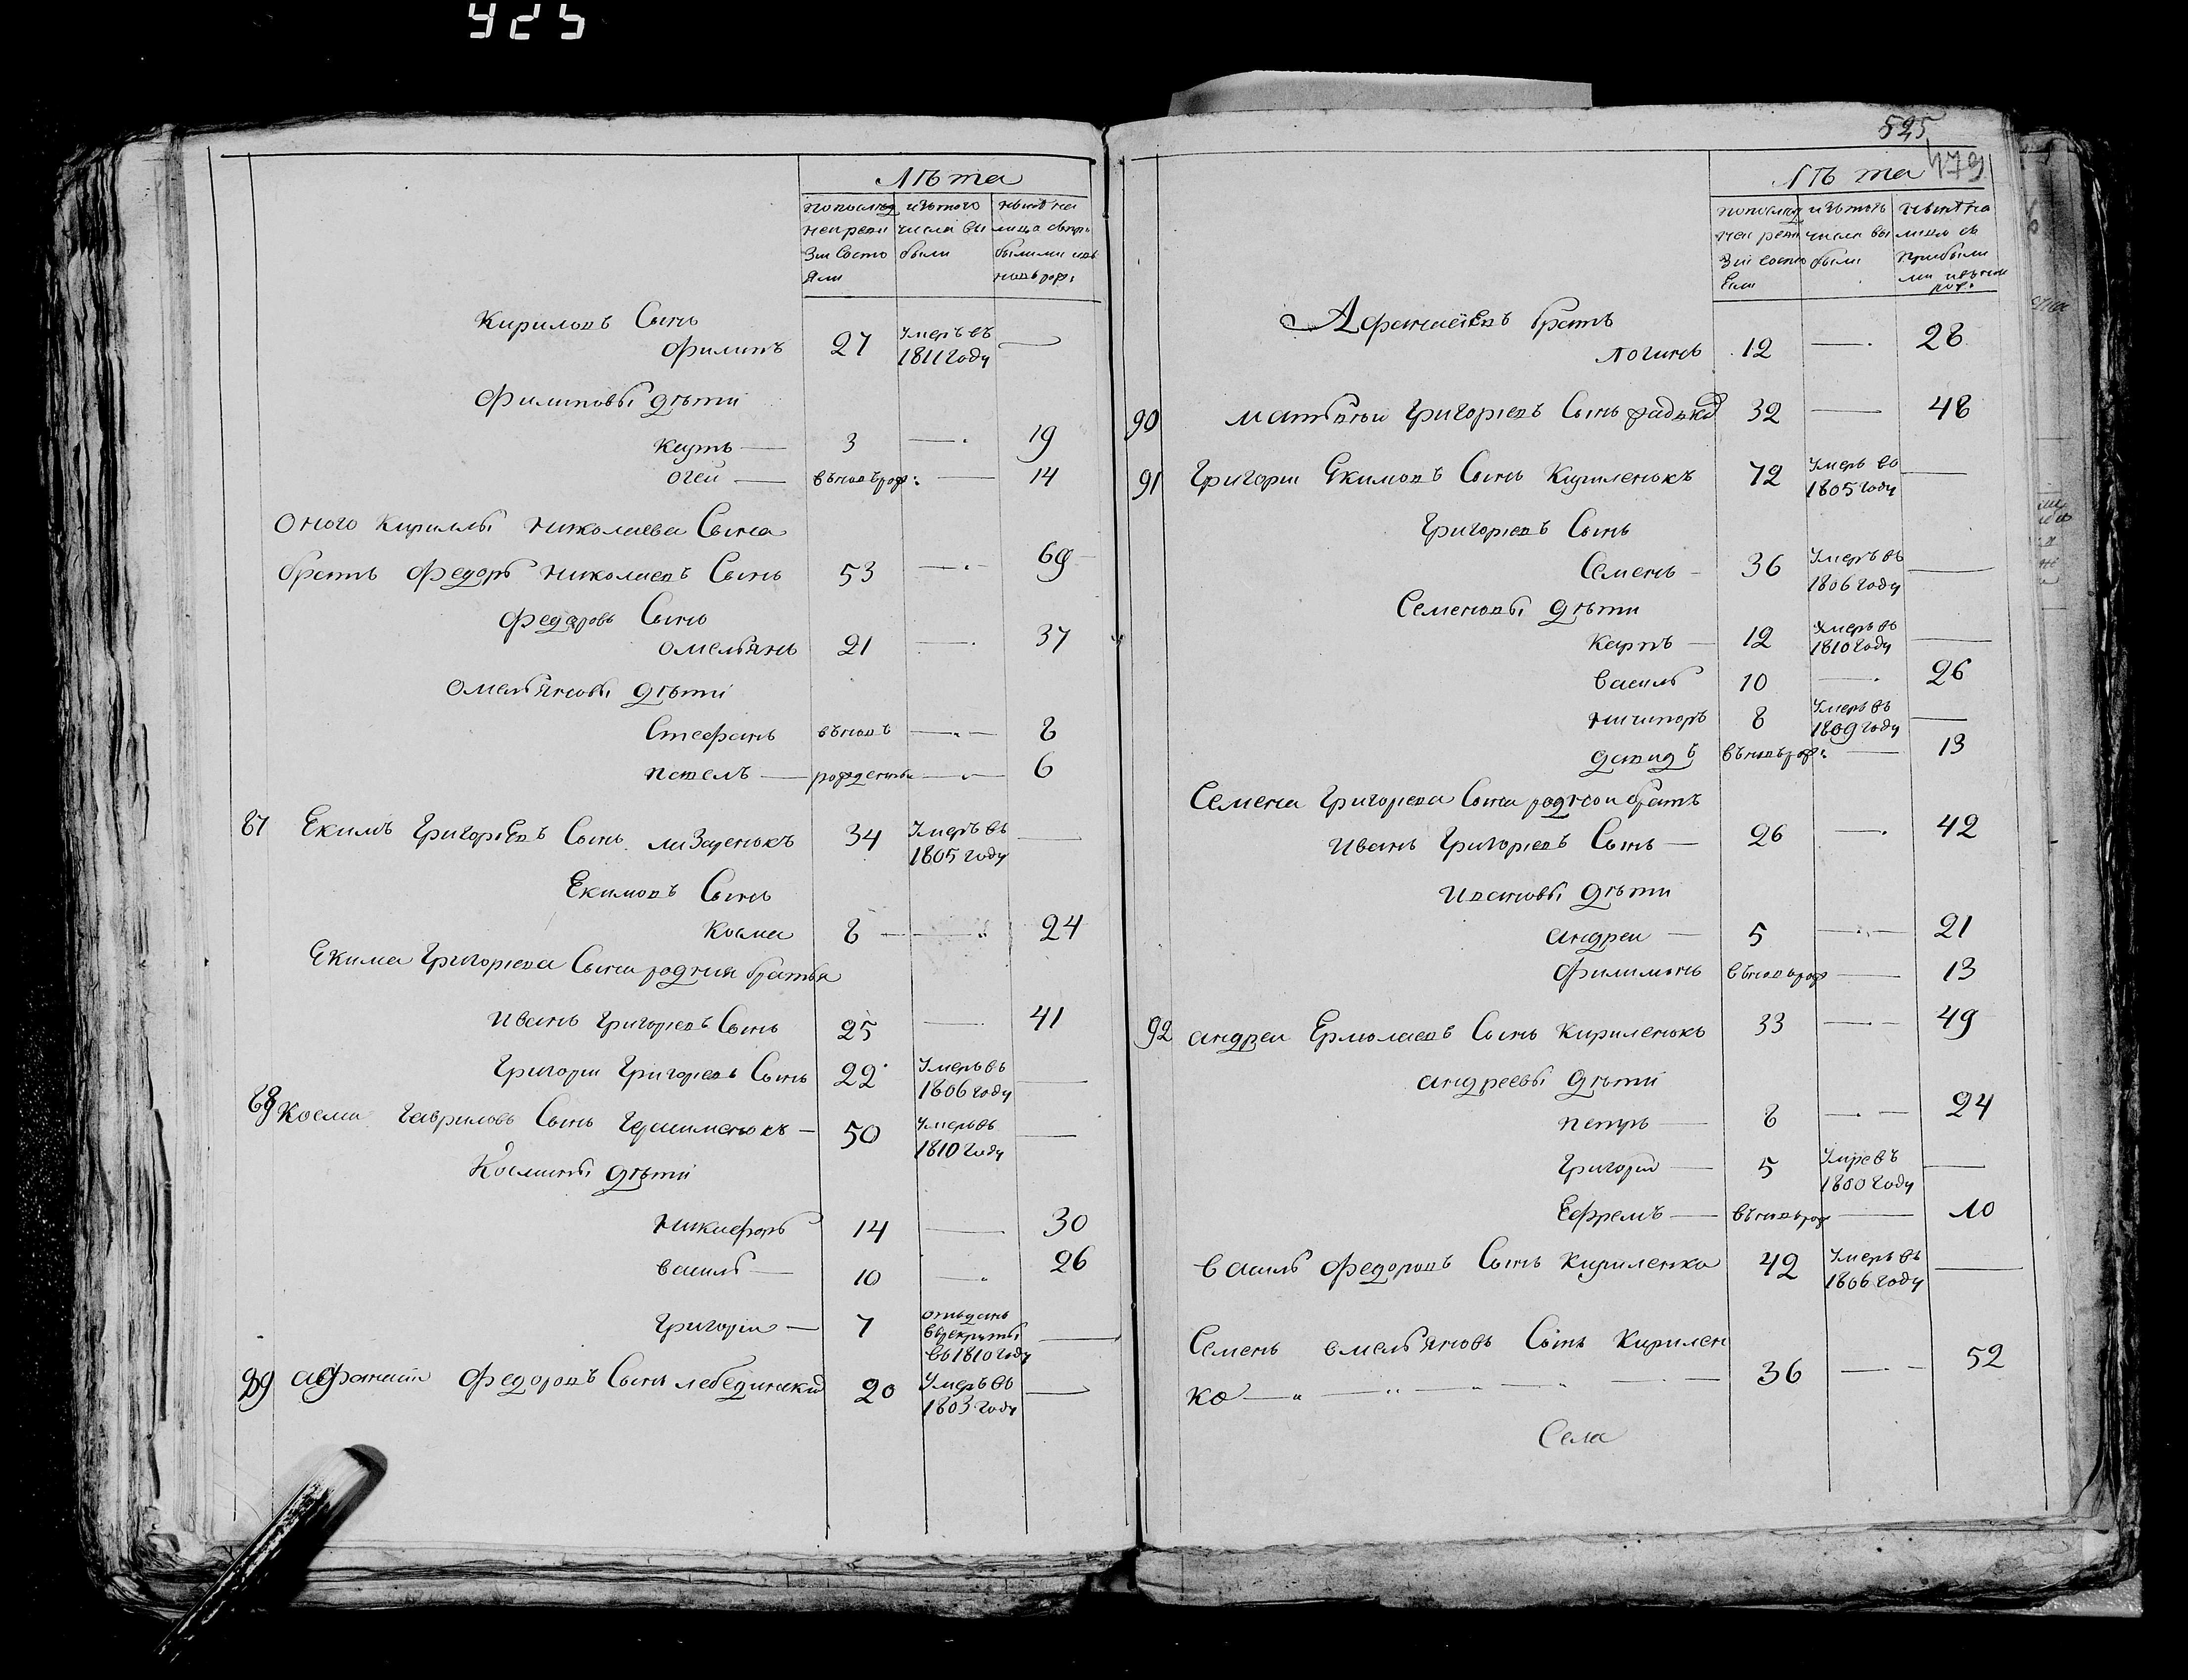 925
Лѣта
попослед изътого нынѣ на
неи реви числа вы лицо съпри
зии состо были былыми изъ
яли новърож:
Кириловъ Сынъ
Филипъ 27 Умеръ въ —
1811 году
Филиповы дѣти
Карпъ — 3 — 19
Огеи — вѣновърож: — 14
Оного Кириллы Николаева Сына
братъ Федоръ Николаевъ Сынъ 53 — 69
Федаровъ Сынъ
Омельянъ 21 — 37
Омельяновы дѣти
Стефанъ вѣновъ — 8
Павелъ — рожденны — 6
87 Екимъ Григориевъ Сынъ 34 Умеръ въ —
1805 году
Екимовъ Сынъ
Косма 8 — 24
Екима Григориева Сына родния братья
Иванъ Григориевъ Сынъ 25 — 41
Григории Григориевъ Сынъ 22 Умеръ въ —
1806 году
88 Косма Гавриловъ Сынъ Герасименокъ — 50 Умеръ въ —
1810 году
Космины дѣти
Никифоръ 14 — 30
Василь — 10 — 26
Григории — 7 отъданъ
върекруты —
въ 1810 году
89 Афанасии Федоровъ Сынъ лебединский 20 Умеръ въ —
1803 году
525
479
Лѣта
попослед изътого нынѣ на
неи реви числа вы лицо съ
зии состо были прибылы
яли ми изънов
рож:
Афанасиевъ братъ
Логинъ 12 — 28
90 Матвеи Григориевъ Сынъ 32 — 48
91 Григории Екимовъ Сынъ Кириленокъ 72 Умеръ во —
1805 году
Григориевъ Сынъ
Семенъ — 36 Умеръ въ —
1806 году
Семеновы дѣти
Карпъ — 12 Умеръ въ —
1810 году
Василь 10 — 26
Ничипоръ 8 Умеръ въ —
1809 году
Давидъ вѣновърож: — 13
Семена Григориева Сына роднои братъ
Иванъ Григориевъ Сынъ — 26 — 42
Ивановы дѣти
Андреи — 5 — 21
Филимонъ вѣновърож — 13
92 Андреи Ермолаевъ Сынъ Кириленокъ 33 — 49
Андреевы дѣти
Петръ — 8 — 24
Григории — 5 Умре въ —
1800 году
Ефремъ — вѣновърож — 10
Василь Федоровъ Сынъ Кириленко 42 Умеръ въ —
1806 году
Семенъ Омельяновъ Сынъ Кирилен
ко — 36 — 52
Села